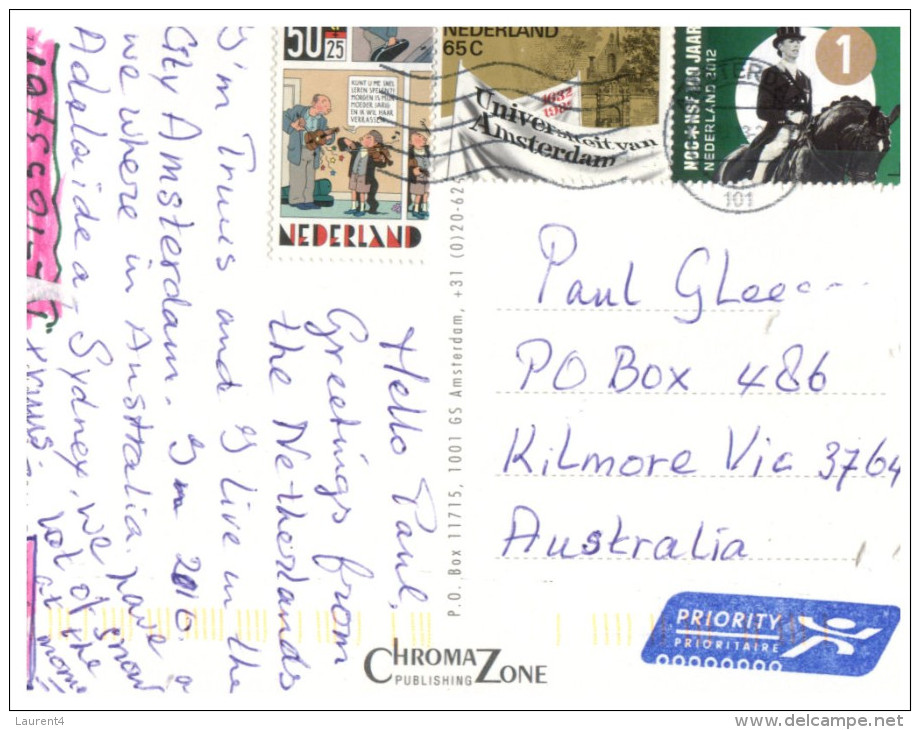 50
25
KUNT U ME SNEL
LEREN SPELEN?
MORGEN IS MIJN
MOEDER JARIG
EN IK WIL HAAR
VERRASSEN!
NEDERLAND
NEDERLAND
65 C
1632
Universiteit van
Amsterdam
NOC*NSF 100 JAAR
NEDERLAND 2012
1
101
Hello Paul,
Greetings from
the Netherlands
I'm Truus and I live in the
City Amsterdam. In 2010
we where in Australia.
Adelaide a Sydney. we
have a
lot of snow
at the
mom
P.O. Box 11715, 1001 GS Amsterdam, +31 (0)20-625
Paul Glee
PO Box 486
Kilmore Vic 3764
Australia
PRIORITY
PRIORITAIRE
CHROMAZONE
PUBLISHING
Laurent4
www.delcampe.net